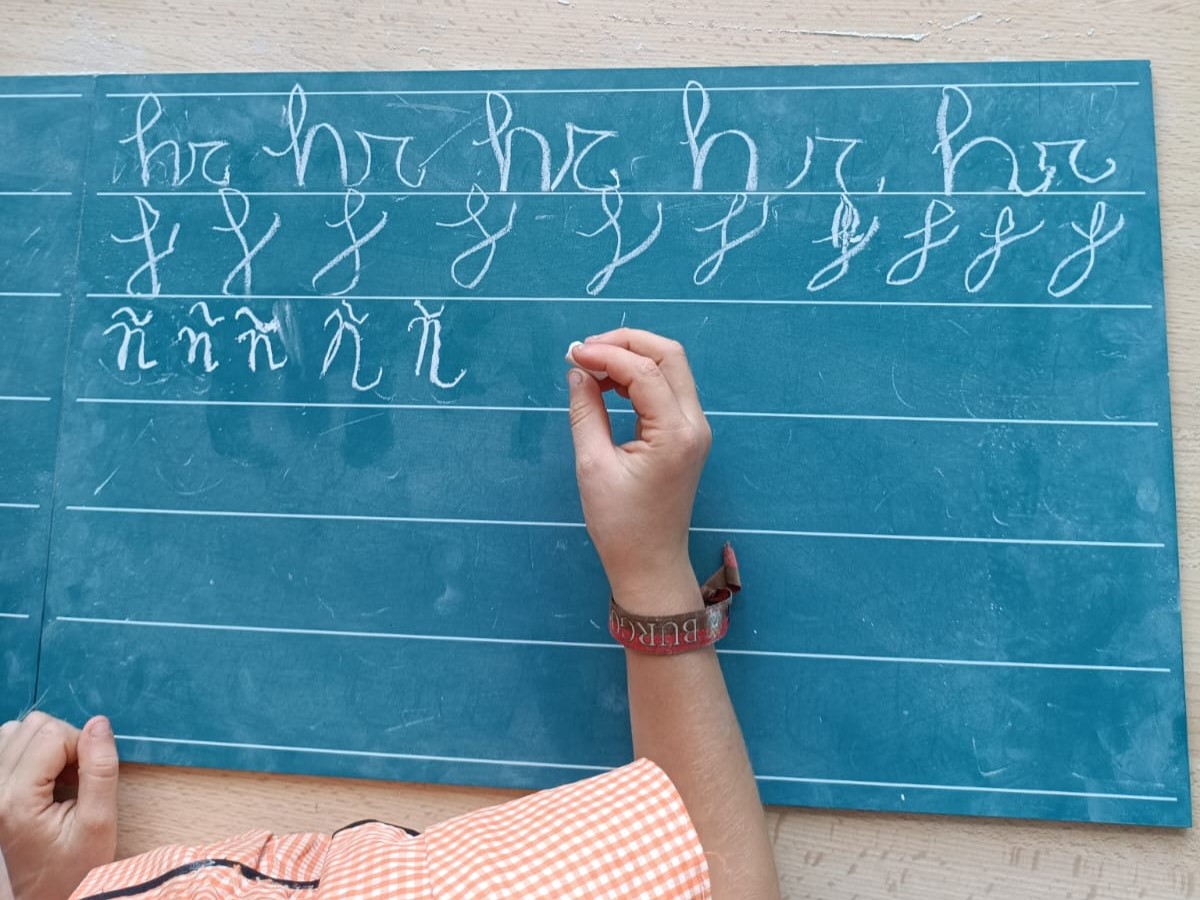 hr hr hr hr hr
f f f f f f f f f f
ñ ñ ñ ñ ñ